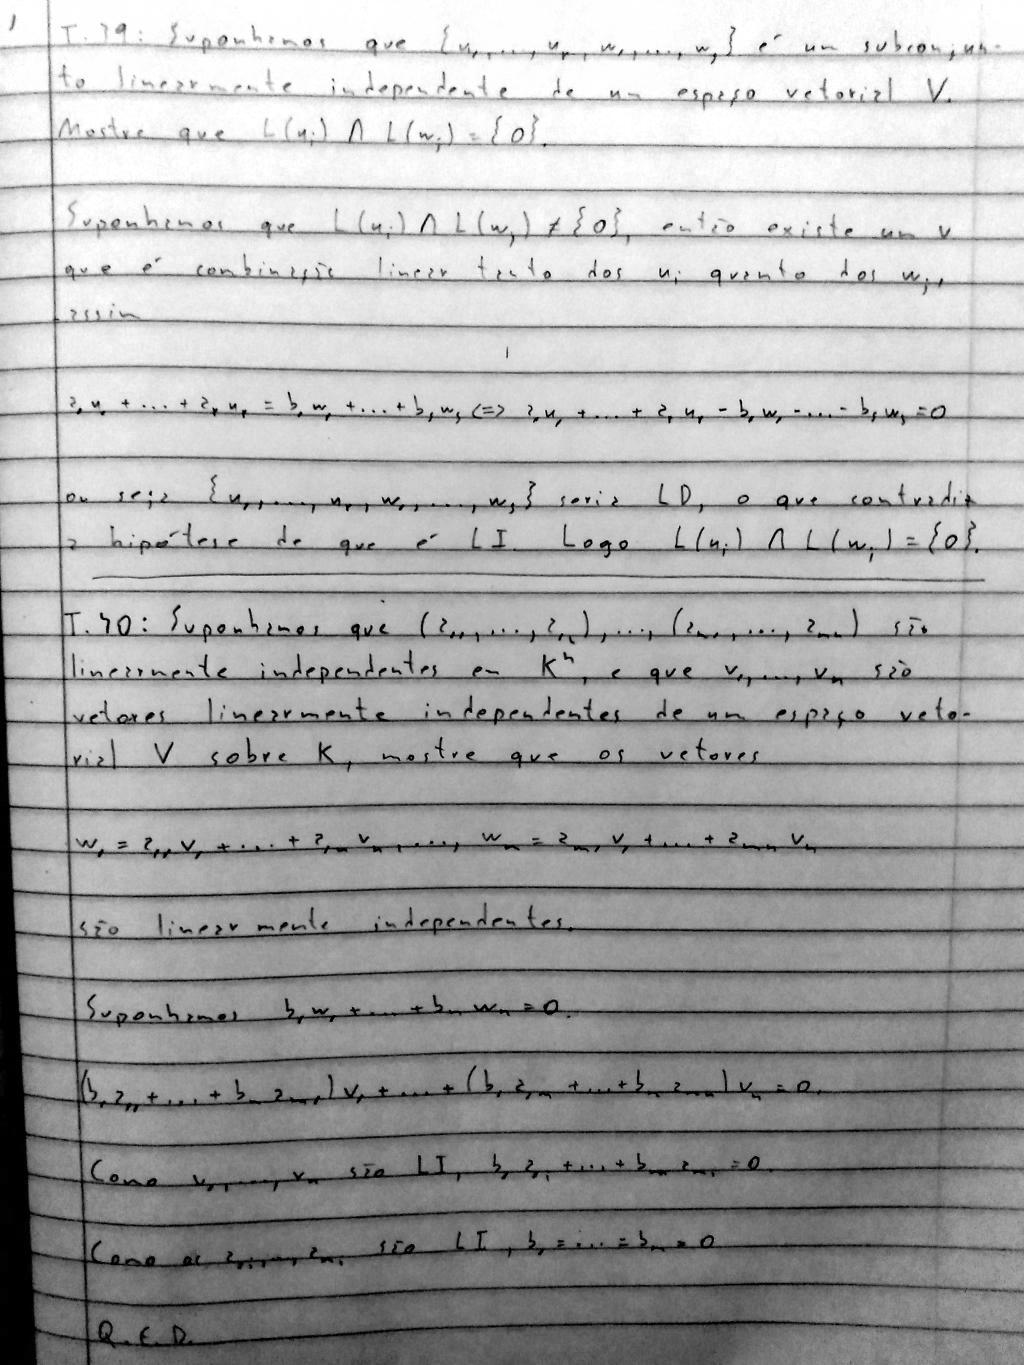 T.39: Suponhamos que {u₁,...,uᵣ,w₁,...,wₛ} é um subconjun-
to linearmente independente de um espaço vetorial V.
Mostre que L(uᵢ) ∩ L(wⱼ) = {0}.
Suponhamos que L(uᵢ) ∩ L(wⱼ) ≠ {0}, então existe um v
que é combinação linear tanto dos uᵢ quanto dos wⱼ,
assim
a₁u₁ + ... + aᵣuᵣ = b₁w₁ + ... + bₛwₛ <=> a₁u₁ + ... + aᵣuᵣ - b₁w₁ - ... - bₛwₛ = 0
ou seja {u₁,...,uᵣ,w₁,...,wₛ} seria LD, o que contradiz
a hipótese de que é LI. Logo L(uᵢ) ∩ L(wⱼ) = {0}.
T.40: Suponhamos que (a₁₁,...,a₁ₙ),...,(aₘ₁,...,aₘₙ) são
linearmente independentes em Kⁿ, e que v₁,...,vₙ são
vetores linearmente independentes de um espaço veto-
rial V sobre K, mostre que os vetores
w₁ = a₁₁v₁ + ... + a₁ₙvₙ,..., wₘ = aₘ₁v₁ + ... + aₘₙvₙ
são linearmente independentes.
Suponhamos b₁w₁ + ... + bₘwₘ = 0.
(b₁a₁₁ + ... + bₘaₘ₁)v₁ + ... + (b₁a₁ₙ + ... + bₘaₘₙ)vₙ = 0.
Como v₁,...,vₙ são LI, b₁a₁ᵢ + ... + bₘaₘᵢ = 0.
Como os a₁ᵢ,...,aₘᵢ são LI, b₁ = ... = bₘ = 0
Q.E.D.